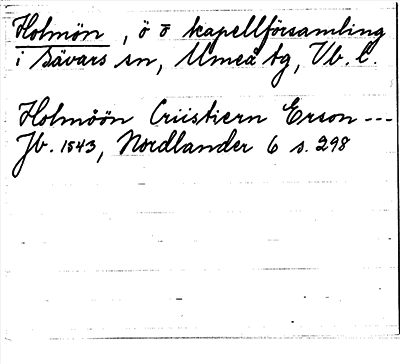 Holmön, ö o kapellförsamling
i Sävars sn, Umeå tg, Vb. l.
Holmöön Cristiern Erson ---
Jb. 1543, Nordlander 6 s. 298